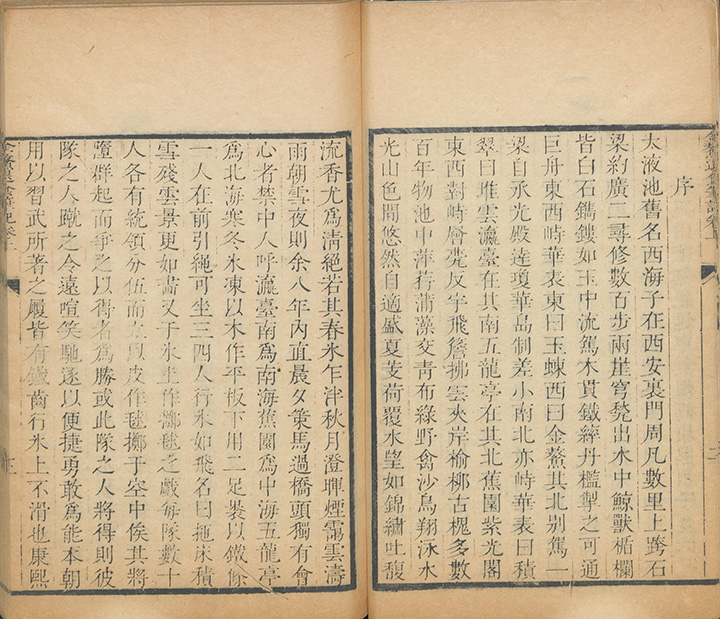 序
太液池舊名西海子在西安裏門周凡數里上跨石
梁約廣二尋修數百步兩崖穹甃出水中鯨獸楯欄
皆白石鐫鏤如玉中流駕木貫鐵縴丹檻掣之可通
巨舟東西峙華表東曰玉蝀西曰金鰲其北別駕一
梁自承光殿達瓊華島制差小南北亦峙華表曰積
翠曰堆雲瀛臺在其南五龍亭在其北蕉園紫光閣
東西對峙層甍反宇飛簷拂雲夾岸榆柳古槐多數
百年物池中萍荇蒲藻交青布綠野禽沙鳥翔泳水
光山色間悠然自適盛夏芰荷覆水望如錦繡吐馥
流香尤爲清絕若其春氷乍泮秋月澄暉煙靄雲濤
雨朝雪夜則余八年內直晨夕策馬過橋頭獨有會
心者禁中人呼瀛臺南爲南海蕉園爲中海五龍亭
爲北海寒冬氷凍以木作平板下用二足裝以鐵條
一人在前引繩可坐三四人行氷如飛名曰拖床積
雪殘雲景更如畫又于氷上作擲毬之戲每隊數十
人各有統領分伍而立以皮作毬擲于空中俟其將
墮群起而爭之以得者爲勝或此隊之人將得則彼
隊之人蹴之令遠喧笑馳逐以便捷勇敢爲能本朝
用以習武所著之履皆有鐵齒行氷上不滑也康熙